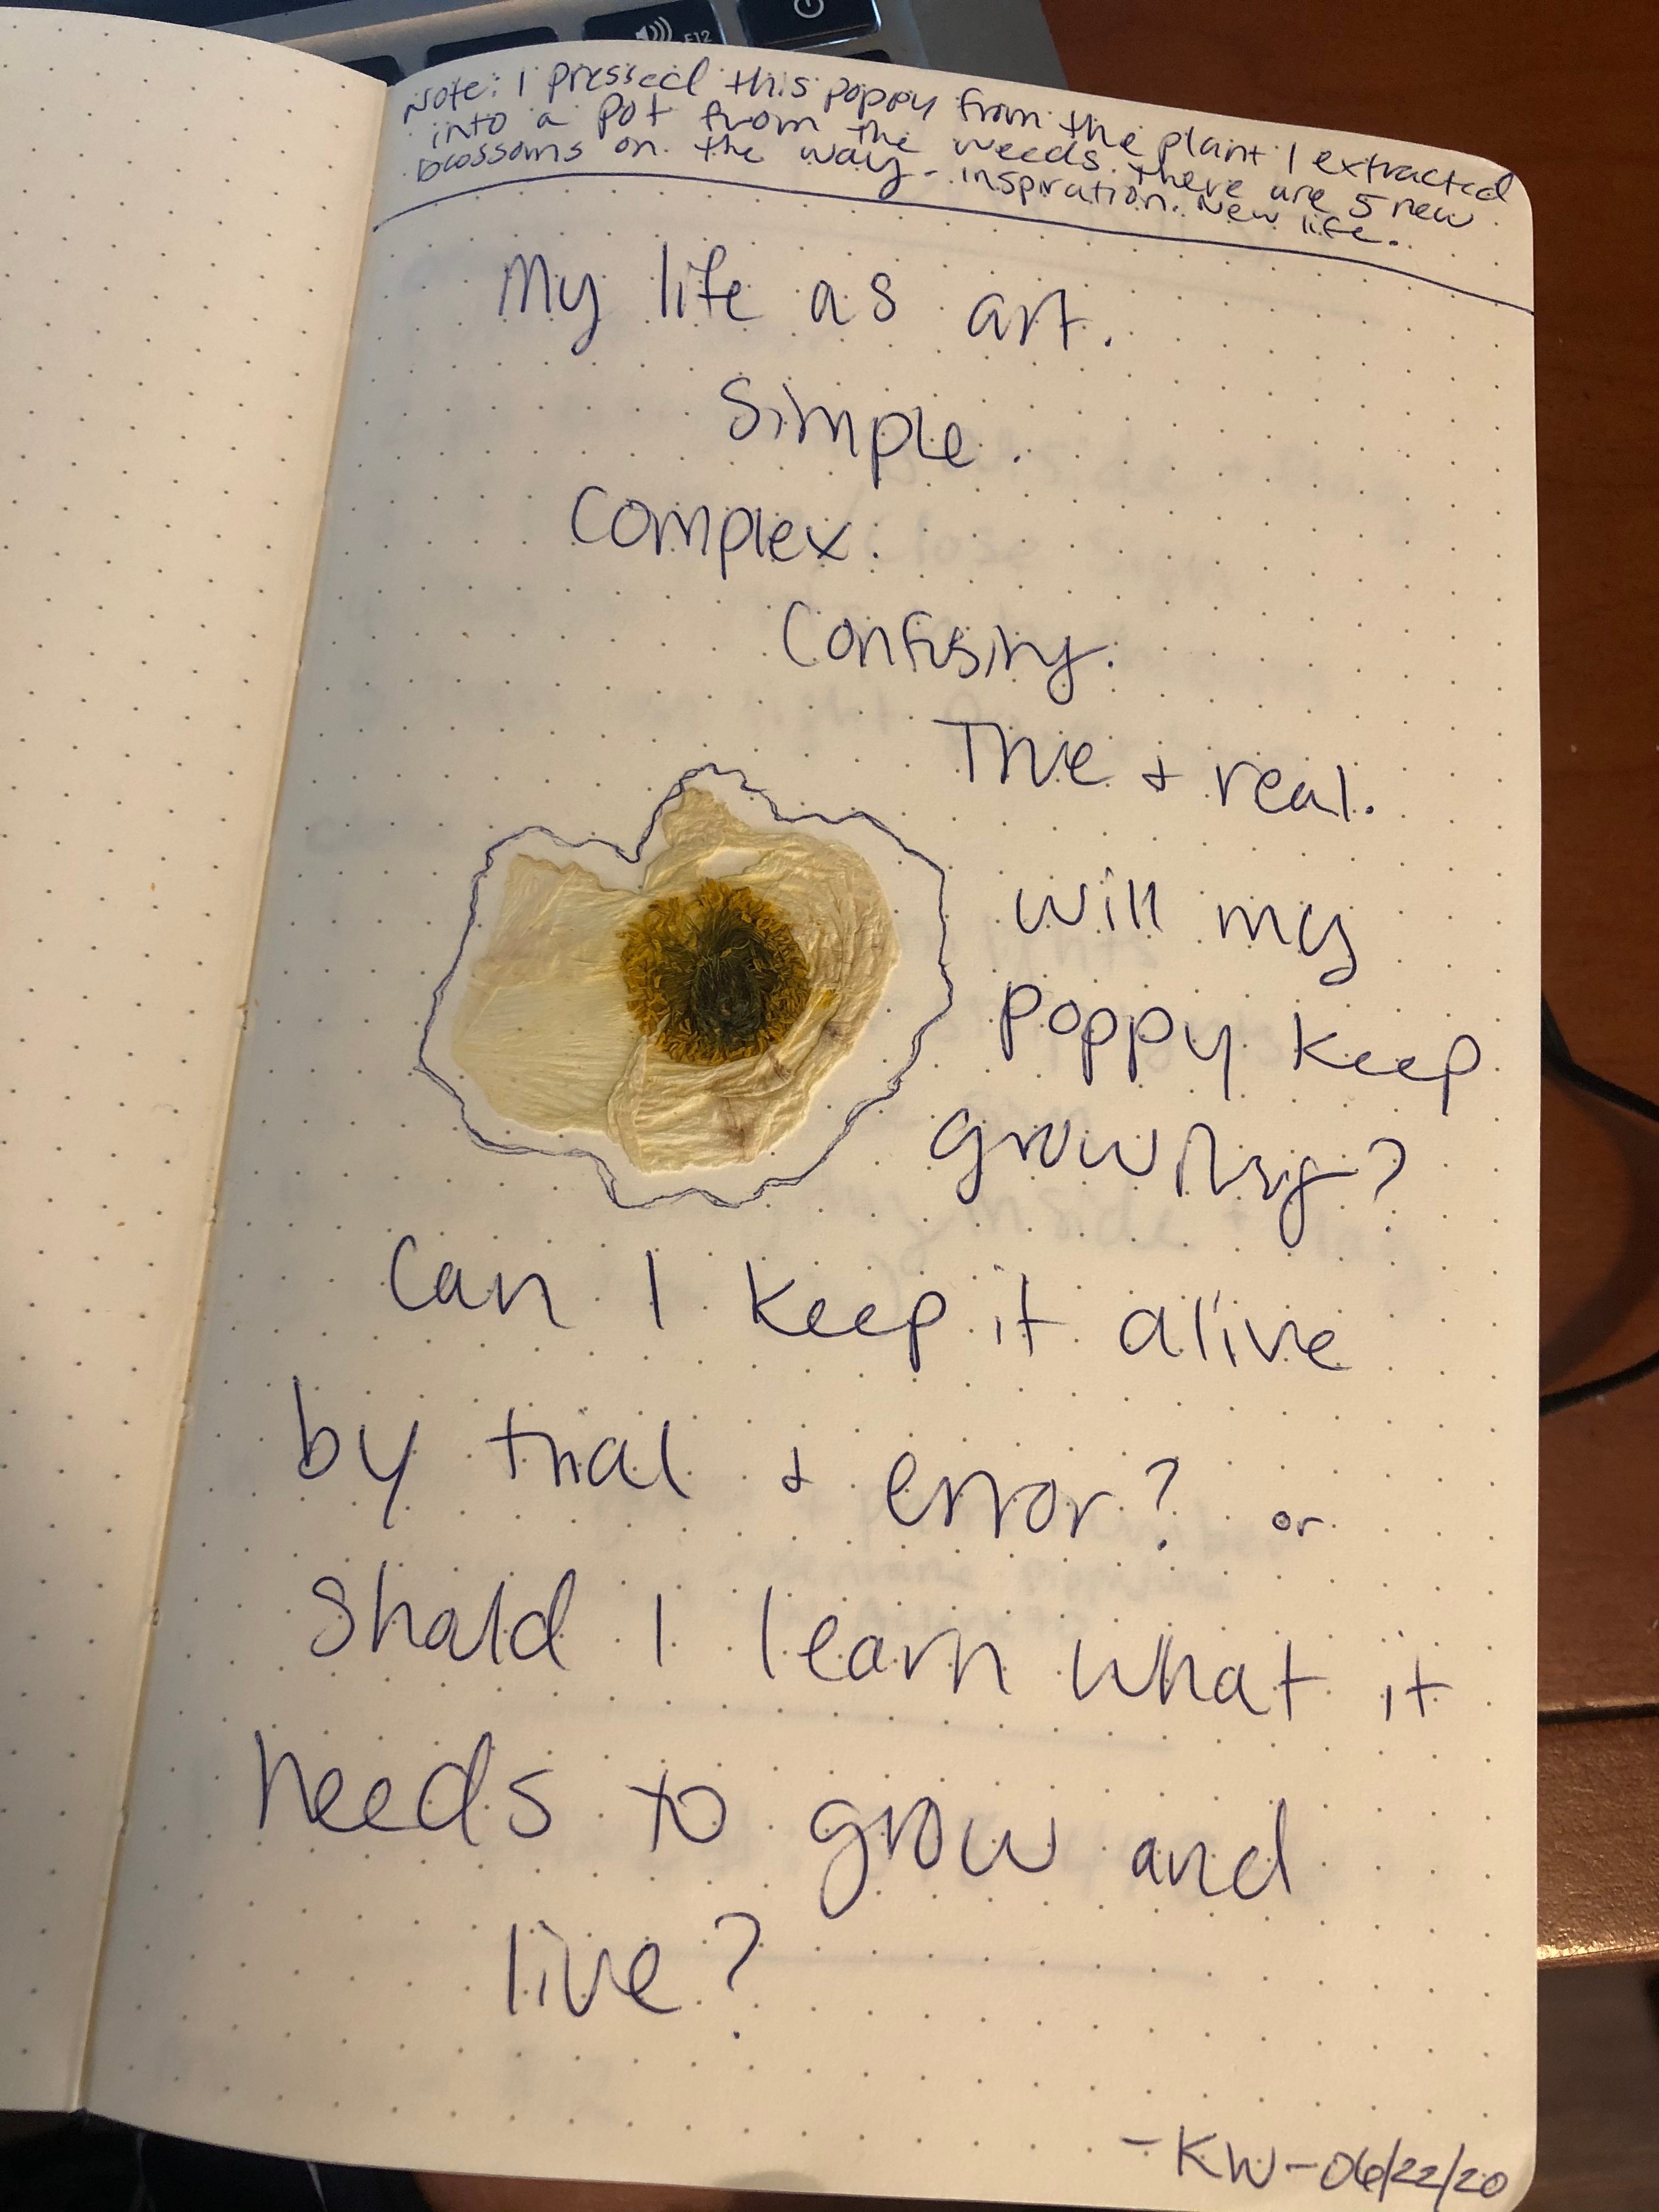 F12
Note: I pressed this poppy from the plant I extracted
into a pot from the weeds. there are 5 new
blossoms on the way - inspiration. New life.
My life as art.
Simple.
Complex.
Confusing.
True + real.
will my
poppy keep
growing?
Can I keep it alive
by trial + error? or
should I learn what it
needs to grow and
live?
- KW - 06/22/20